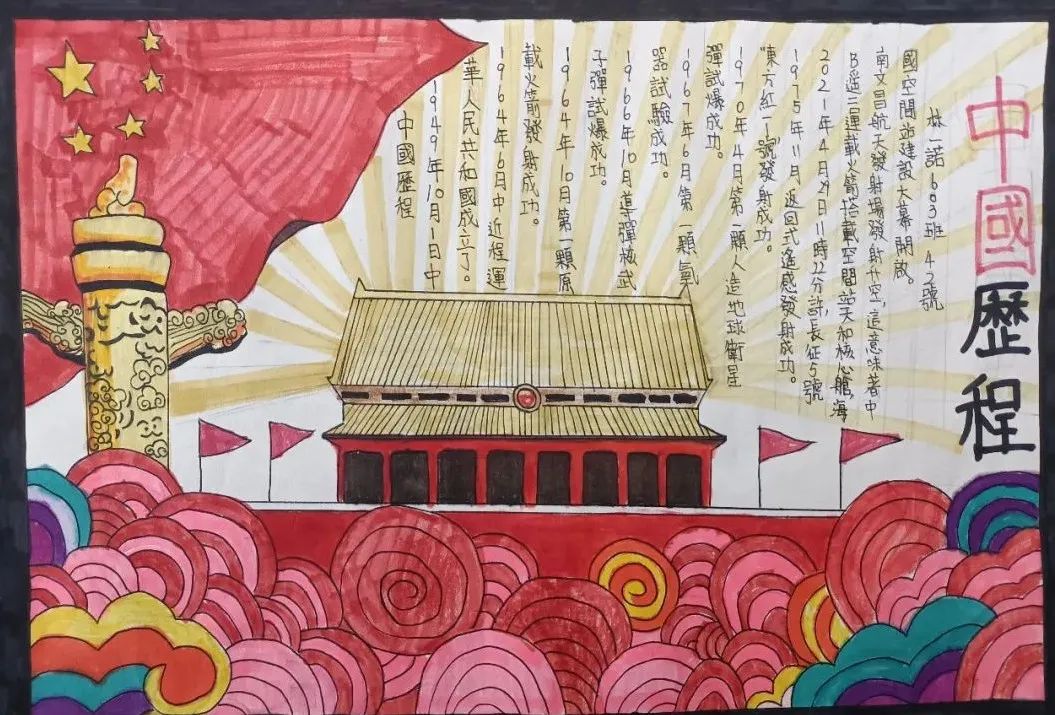 中國歷程
中國歷程
1949年10月1日中
華人民共和國成立了。
1964年6日中近程運
載火箭發射成功。
1964年10月第一顆原
子彈試爆成功。
1966年10月導彈核武
器試驗成功。
1967年6月第一顆氫
彈試爆成功。
1970年4月第一顆人造地球衛星
"東方紅一號發射成功。
1975年11月返回式遙感發射成功。
2021年4月29日11時22分許,長征5號
B遥二運載火箭搭載空間站天和核心艙,海
南文昌航天發射場發射升空,這意味著中
國空間站建設大幕開啟。
林一諾 603班 42號